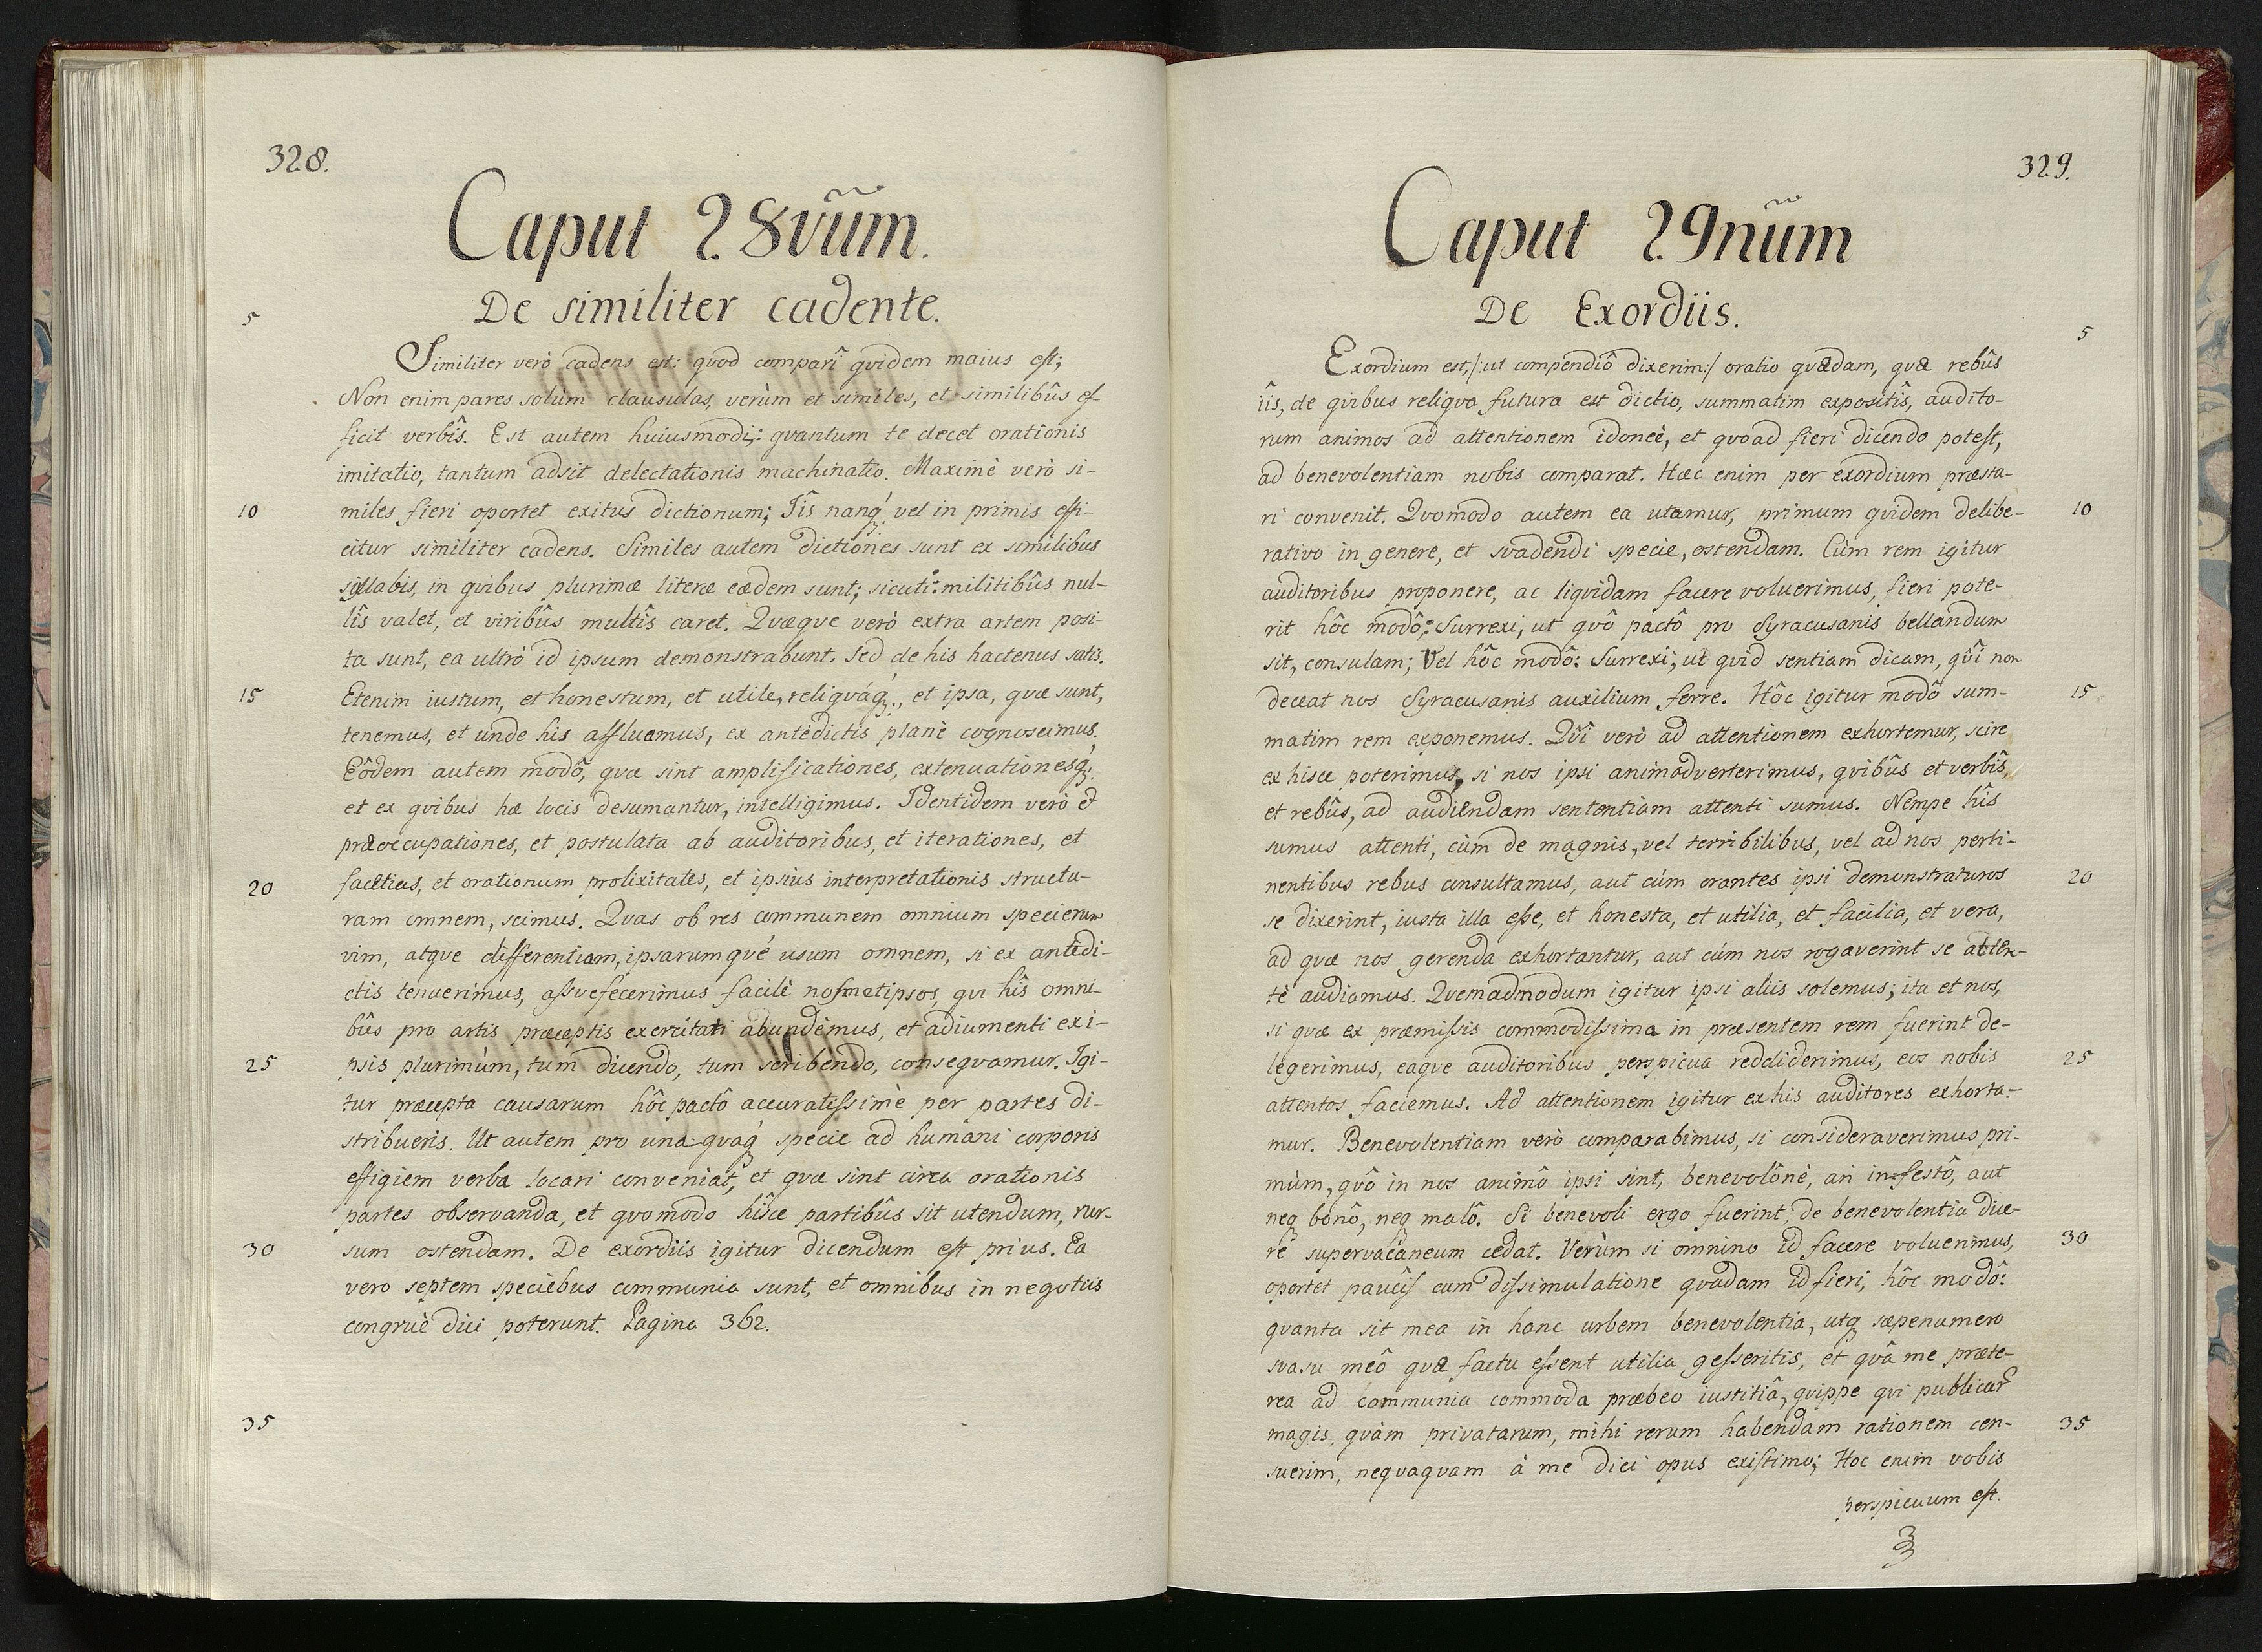 328.
Caput 28vũm.
De similiter cadente.
5
Similiter verò cadens est: qvod comparî qvidem maius est;
Non enim pares solùm clausulas, verùm et similes, et similibûs ef-
ficit verbîs. Est autem huiusmodi: qvantum te decet orationis
imitatio, tantum adsit delectationis machinatio. Maximè verò si-
10
miles fieri oportet exitus dictionum; Iîs nanq́; vel in primis effi-
citur similiter cadens. Similes autem dictiones sunt ex similibus
syllabis, in qvibus plurimæ literæ eædem sunt; sicuti: militibûs nul-
lîs valet, et viribûs multîs caret. Qvæqve verò extra artem posi-
ta sunt, ea ultrò id ipsum demonstrabunt. Sed de his hactenus satis.
15
Etenim iustum, et honestum, et utile, reliqváq;, et ipsa, quæ sunt,
tenemus, et unde his affluamus, ex antèdictis planè cognoscimus.
Eôdem autem modô, qvæ sint amplificationes, extenuationesq́;
et ex qvibus hæ locis desumantur, intelligimus. Identidem verò et
præoccupationes, et postulata ab auditoribus, et iterationes, et
20
facetias, et orationum prolixitates, et ipsius interpretationis structu-
ram omnem, scimus. Qvas ob res communem omnium specierum
vim, atqve differentiam, ipsarumqvé usum omnem, si ex antedi-
ctis tenuerimus, assvefecerimus facilè nosmetipsos, qvi hîs omni-
bûs pro artis præceptis exercitati abundèmus, et adiumenti ex i-
25
psis plurimùm, tum dicendo, tum scribendo, conseqvamur. Igi-
tur præcepta causarum hôc pactô accuratissimè per partes di-
stribueris. Ut autem pro una-qvaq́; specie ad humani corporis
effigiem verba locari conveniat, et qvæ sint circa orationis
partes observanda, et qvomodo hîsce partibûs sit utendum, rur-
30
sum ostendam. De exordiis igitur dicendum est prius. Ea
vero septem speciebus communia sunt, et omnibus in negotiis
congruè dici poterunt. Pagina 362.
35
329.
Caput 29nũm
De Exordiis.
5
Exordium est,/:ut compendiô dixerim:/ oratio qvædam, qvæ rebûs
iîs, de qvibus reliqva futura est dictio, summatim expositîs, audito-
rum animos ad attentionem idoneè, et qvoad fieri dicendo potest,
ad benevolentiam nobis comparat. Hæc enim per exordium præsta-
10
ri convenit. Qvomodo autem ea utamur, primum qvidem delibe-
rativo in genere, et svadendi specie, ostendam. Cùm rem igitur
auditoribus proponere, ac liqvidam facere voluerimus, fieri pote-
rit hôc modô: Surrexi, ut qvô pactô pro Syracusanis bellandum
sit, consulam; Vel hôc modô: Surrexi, ut qvid sentiam dicam, qvî non
15
deceat nos Syracusanis auxilium ferre. Hôc igitur modô sum-
matim rem exponemus. Qvî verò ad attentionem exhortemur, scire
ex hisce poterimus, si nos ipsi animadverterimus, qvibûs et verbîs,
et rebûs, ad audiendam sententiam attenti sumus. Nempe hîs
sumus attenti, cùm de magnis, vel terribilibus, vel ad nos perti-
20
nentibus rebus consultamus, aut cùm orantes ipsi demonstraturos
se dixerint, iusta illa esse, et honesta, et utilia, et facilia, et vera,
ad quæ nos gerenda exhortantur, aut cùm nos rogaverint se atten-
tè audiamus. Qvemadmodum igitur ipsi aliis solemus; ita et nos,
si qvæ ex præmissis commodissima in præsentem rem fuerint de-
25
legerimus, eaqve auditoribus perspicua reddiderimus, eos nobis
attentos faciemus. Ad attentionem igitur ex his auditores exhorta-
mur. Benevolentiam verò comparabimus, si consideraverimus pri-
mùm, qvô in nos animô ipsi sint, benevolônè, an infestô, aut
neq; bonô, neq; malô. Si benevoli ergo fuerint, de benevolentia dice-
30
re supervacaneum cedat. Verùm si omnino id facere voluerimus,
oportet paucîs cum dissimulatione qvadam id fieri, hôc modô:
qvanta sit mea in hanc urbem benevolentia, utq; sæpenumero
svasu meô qvæ factu essent utilia gesseritis, et qvâ me præte-
rea ad communia commoda præbeo iustitiâ, qvippe qvi publicar̃
35
magis, qvàm privatarum, mihi rerum habendam rationem cen-
suerim, neqvaqvam à me dici opus existimo; Hoc enim vobis
perspicuum est.